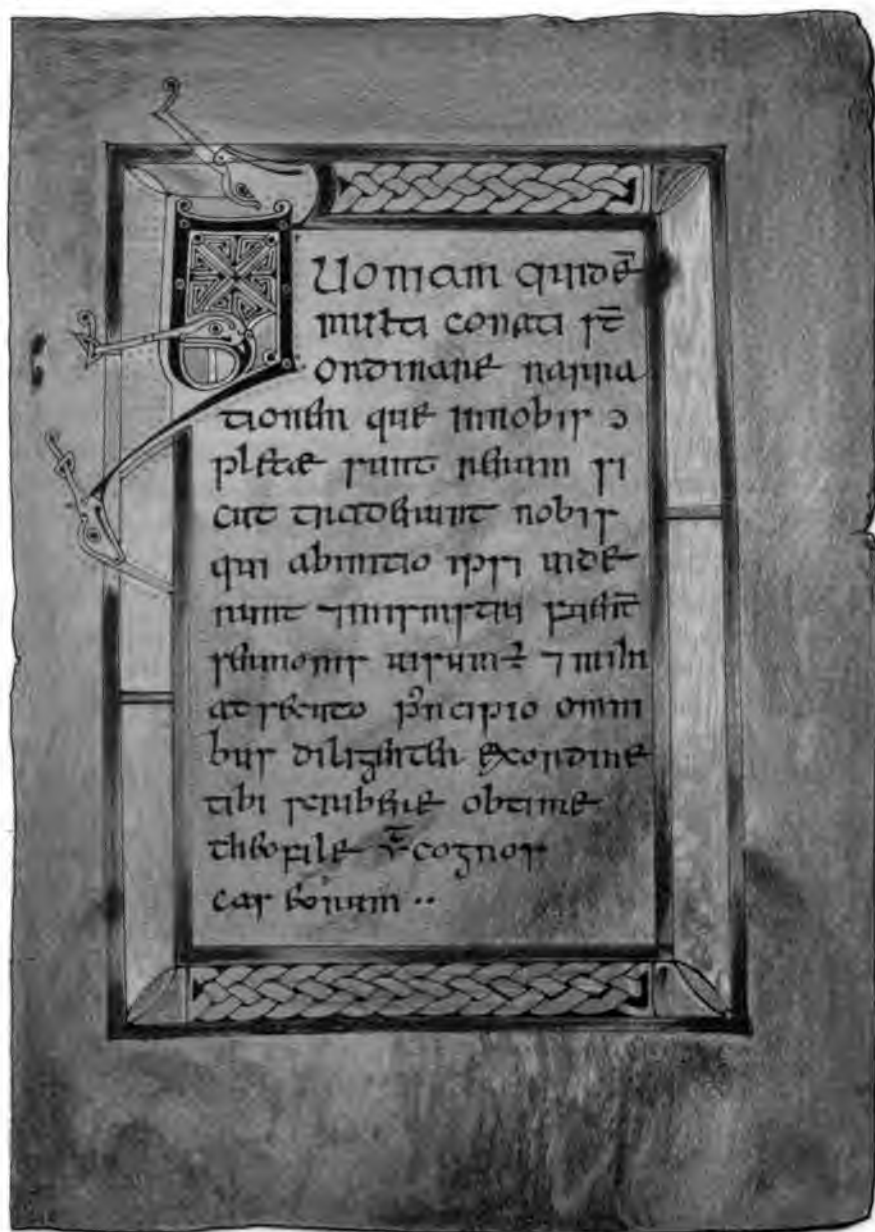 QUoniam quidē
multi conati st̄
ordinare narra
tionem que innobis ɔ
pletæ sunt rerum si
cut traderunt nobis
qui abinitio ipsi uide
runt ⁊ministri fuert̄
sermonis uisum ÷ ⁊mihi
adsecuto pͥncipio omni
bus diligenter exordine
tibi scribere obtime
theofile cognos
cas uerum ··